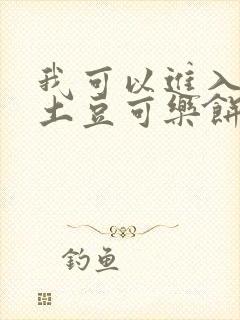 我可以進入
土豆可樂餅
钓鱼